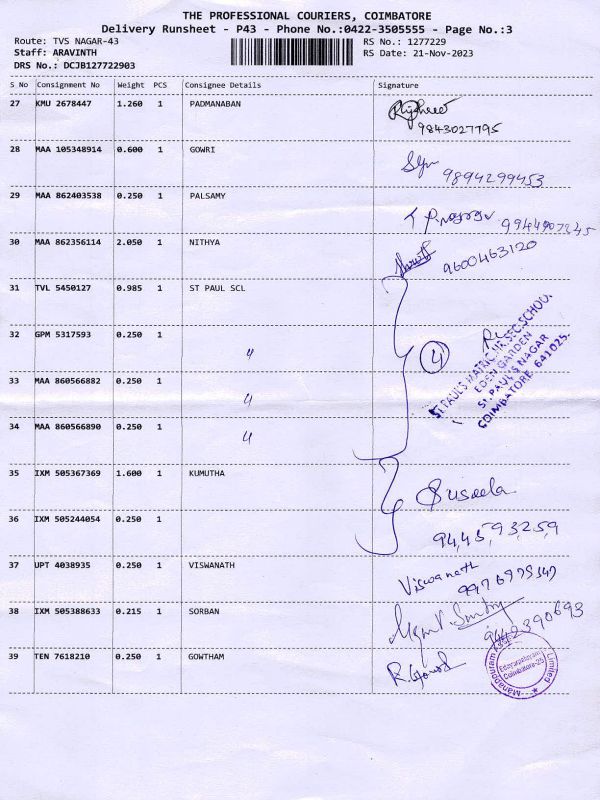 THE PROFESSIONAL COURIERS, COIMBATORE
Delivery Runsheet - P43 - Phone No.:0422-3505555 - Page No.:3
Route: TVS NAGAR-43
Staff: ARAVINTH
DRS No.: DCJB127722903
RS No.: 1277229
RS Date: 21-Nov-2023
S No Consignment No Weight PCS Consignee Details Signature
27 KMU 2678447 1.260 1 PADMANABAN
9843027795
28 MAA 105348914 0.600 1 GOWRI
9894299453
29 MAA 862403538 0.250 1 PALSAMY
30 MAA 862356114 2.050 1 NITHYA
9600463120
31 TVL 5450127 0.985 1 ST PAUL SCL
32 GPM 5317593 0.250 1 4
33 MAA 860566882 0.250 1 4
34 MAA 860566890 0.250 1 4
4
ST.PAUL'S MATRIC.HR.SEC.SCHOOL
EDEN GARDEN
ST.PAUL'S NAGAR
COIMBATORE 641025.
35 IXM 505367369 1.600 1 KUMUTHA
Suseela
36 IXM 505244054 0.250 1
94,45,93,259
37 UPT 4038935 0.250 1 VISWANATH
Viswanath
38 IXM 505388633 0.215 1 SORBAN
9442390693
39 TEN 7618210 0.250 1 GOWTHAM
Coimbatore-25
Limited